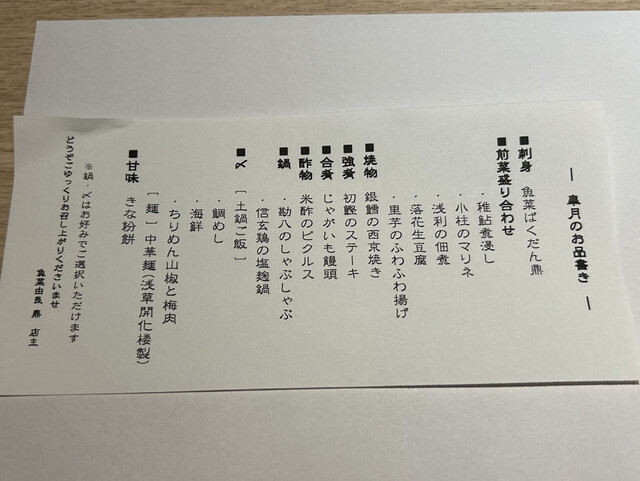 ― 皐月のお品書き ―
■刺身 魚菜ばくだん鼎
■前菜盛り合わせ
・稚鮎煮浸し
・小柱のマリネ
・浅利の佃煮
落花生豆腐
・里芋のふわふわ揚げ
■焼物 銀鱈の西京焼き
■強肴 初鰹のステーキ
■合肴 じゃがいも饅頭
■酢物 米酢のピクルス
■鍋 ・勘八のしゃぶしゃぶ
・信玄鶏の塩麹鍋
■〆 [土鍋ご飯]
・鯛めし
・海鮮
・ちりめん山椒と梅肉
[麺] 中華麺(浅草開化楼製)
■甘味 きな粉餅
※鍋・〆はお好みでご選択いただけます
どうぞごゆっくりお召し上がりくださいませ
魚菜由良 鼎 店主